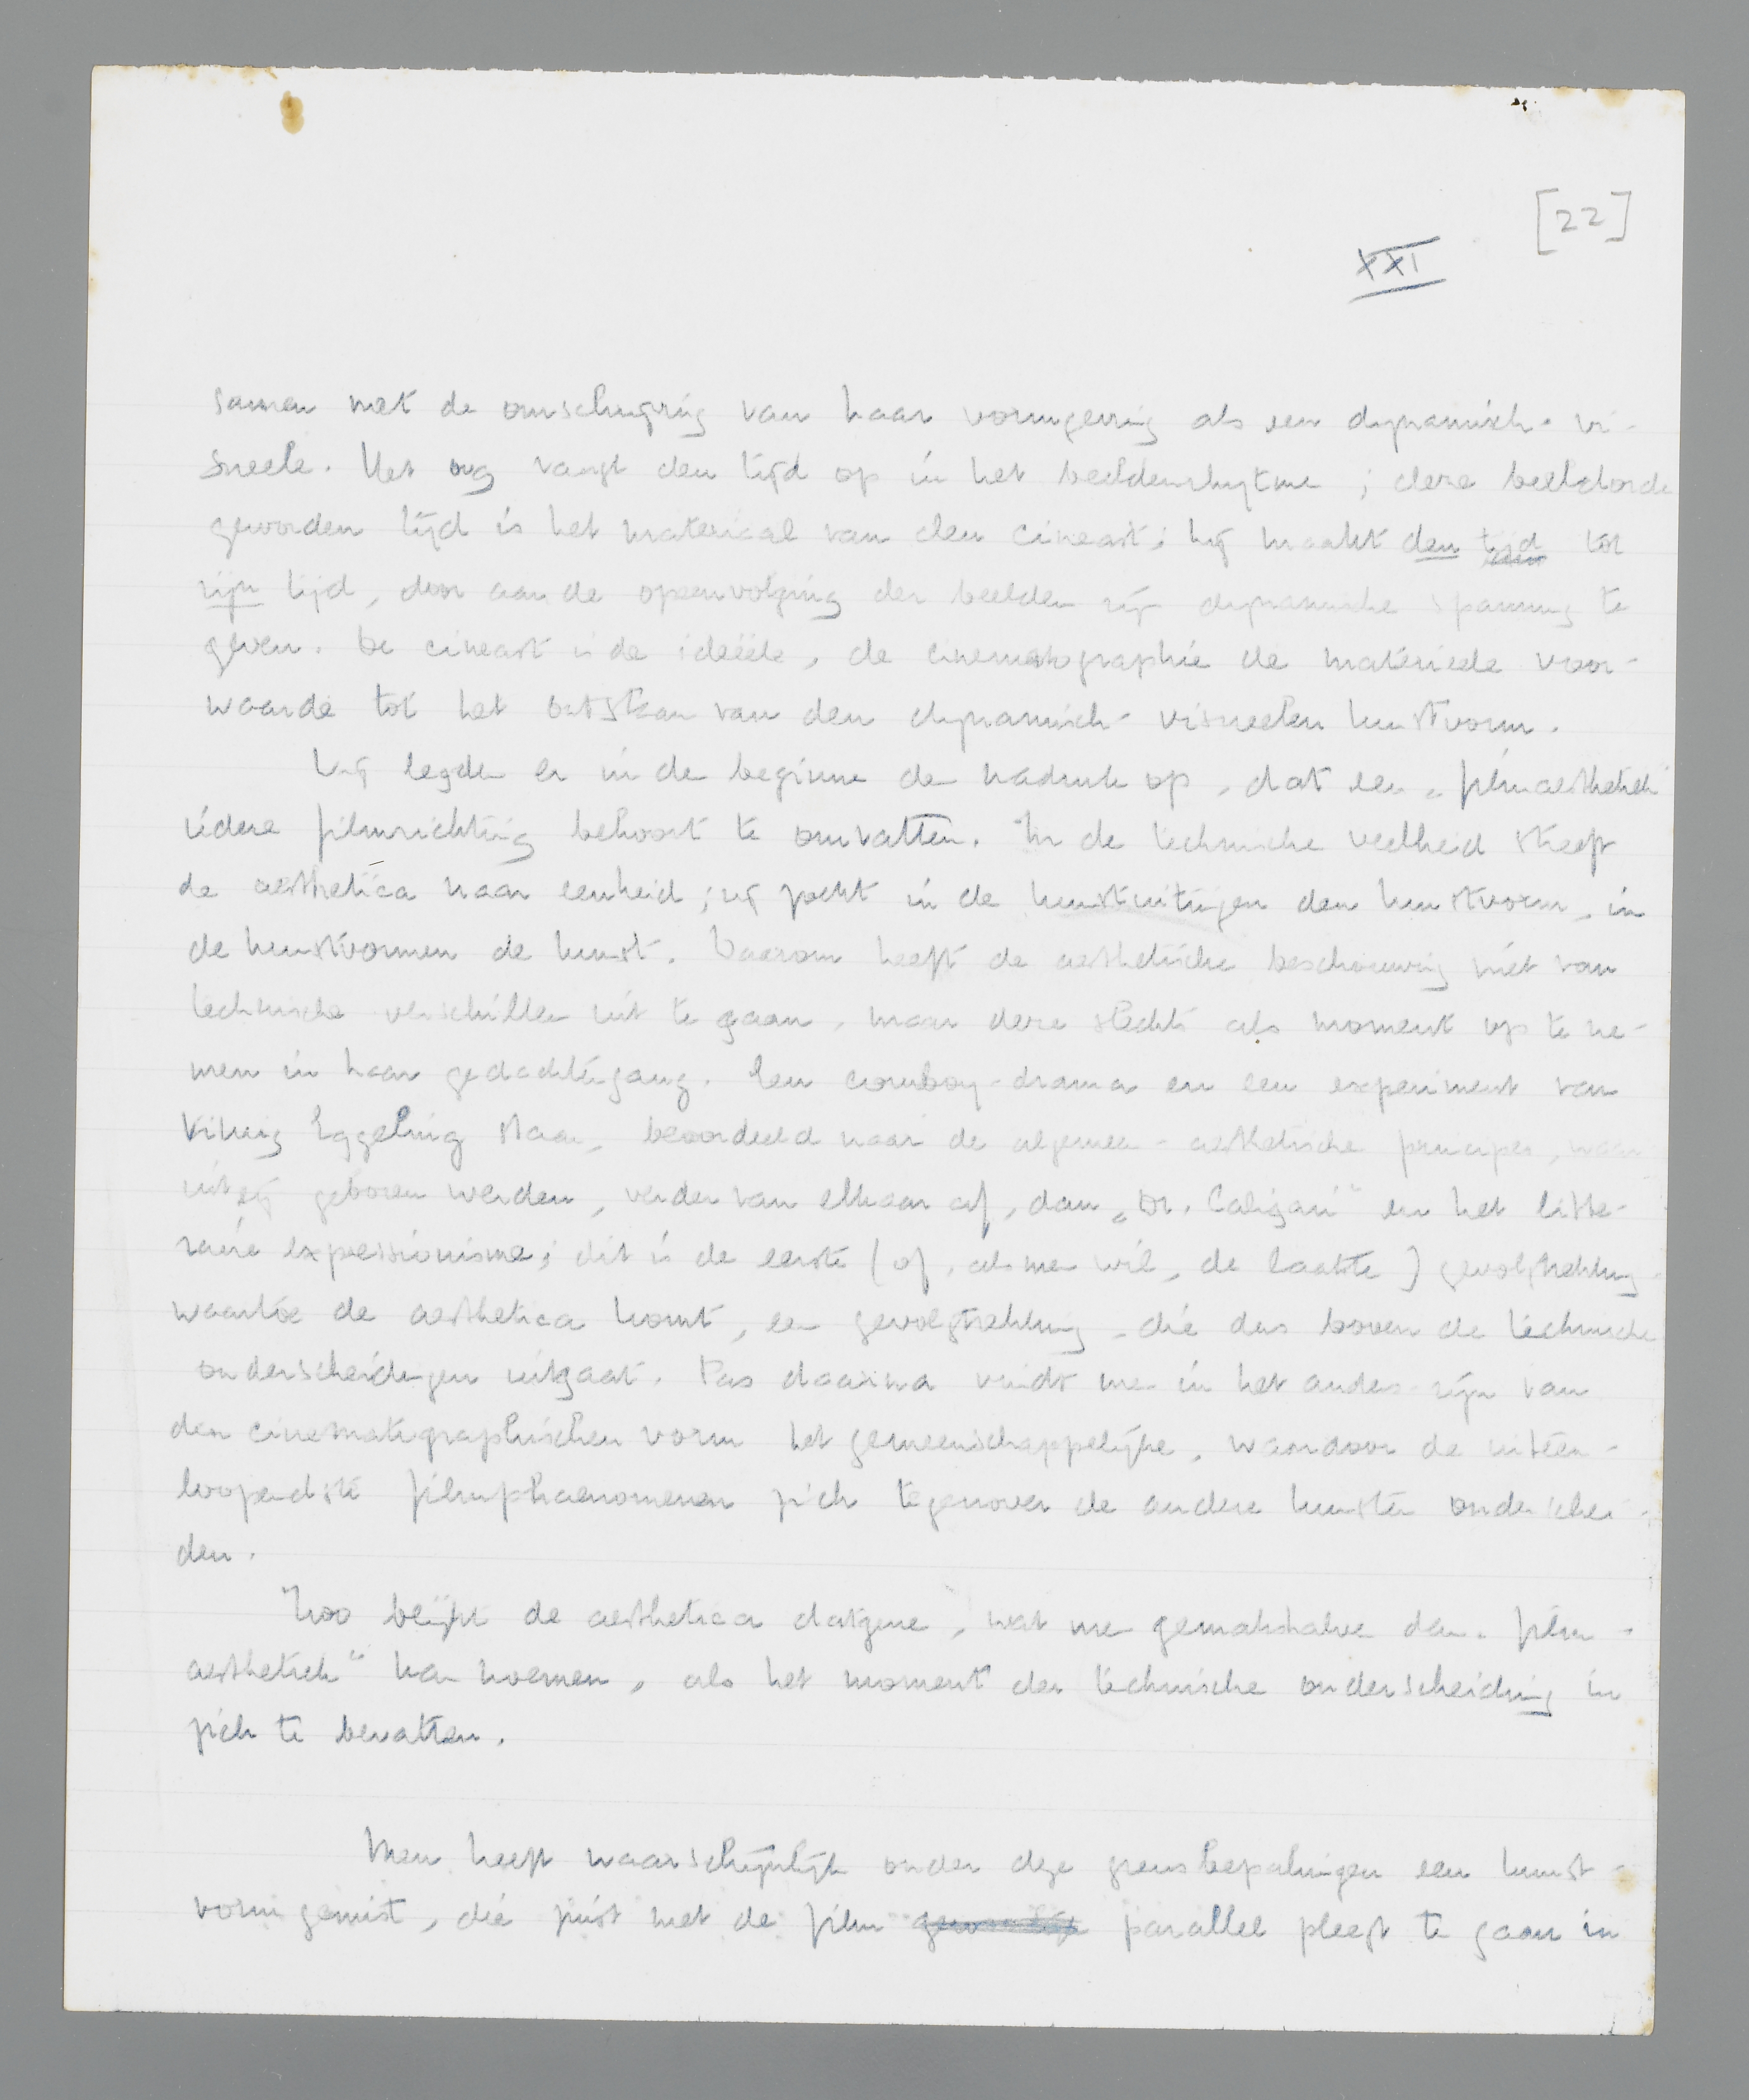 [22]
XXI
samen met de omschrijving van haar vormgeving als een dynamisch-vi-
sueele. Het oog vangt den tijd op in het beeldenrhytme; deze beeldorde
geworden tijd is het materiaal van den cineast; hij maakt den tijd tot
zijn tijd, door aan de opeenvolging der beelden zijn dynamische spanning te
geven. De cineast is de ideëele, de cinematographie de materieele voor-
waarde tot het ontstaan van den dynamisch-visueelen kunstvorm.
Wij legden er in den beginne den nadruk op, dat een „filmaesthetiek"
iedere filmrichting behoort te omvatten. In de technische veelheid streeft
de aesthetica naar eenheid; zij zoekt in de kunstuitingen den kunstvorm, in
de kunstvormen de kunst. Daarom heeft de aesthetische beschouwing niet van
technische verschillen uit te gaan, maar deze slechts als moment op te ne-
men in haar gedachtengang. Een cowboy-drama en een experiment van
Viking Eggeling staan, beoordeeld naar de algemeen-aesthetische principes, waar-
uit zij geboren werden, verder van elkaar af, dan „Dr. Caligari" en het litte-
raire expressionisme; dit is de eerste (of, als men wil, de laatste) gevolgtrekking
waartoe de aesthetica komt, een gevolgtrekking, die dus boven de technische
onderscheidingen uitgaat. Pas daarna vindt men in het anders-zijn van
den cinematographischen vorm het gemeenschappelijke, waardoor de uiteen-
loopendste filmphaenomenen zich tegenover de andere kunsten onderschei-
den.
Zoo blijkt de aesthetica datgene, wat men gemakshalve dan „film-
aesthetiek" kan noemen, als het moment der technische onderscheiding in
zich te bevatten.
Men heeft waarschijnlijk onder deze grensbepalingen een kunst-
vorm gemist, die juist met de film parallel pleegt te gaan in